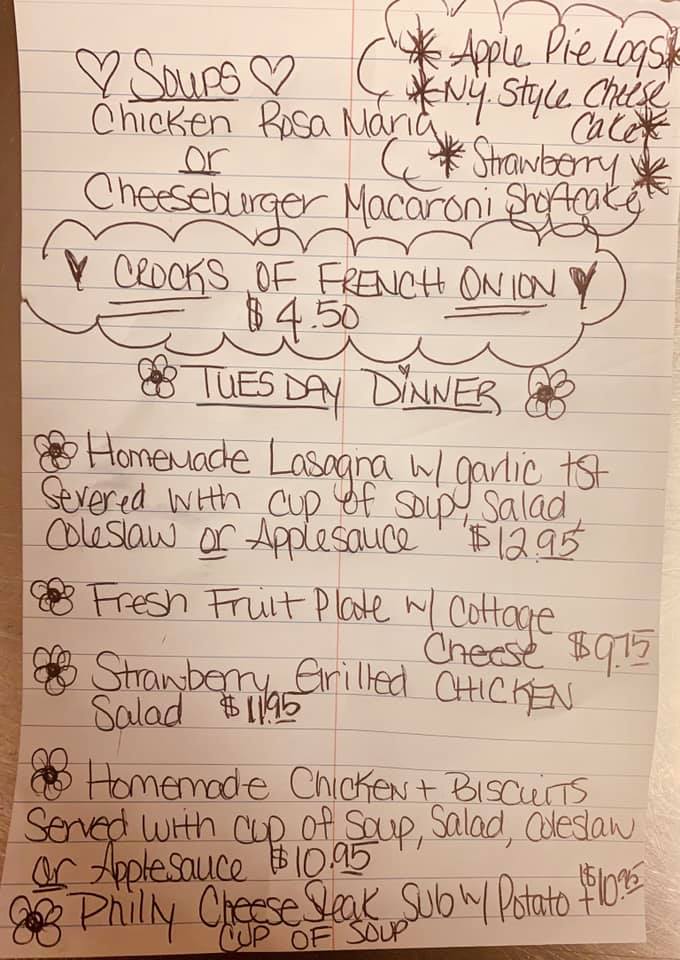 Soups
Chicken Rosa Maria
or
Cheeseburger Macaroni
Apple Pie Logs
N.Y. Style Cheese
Cake
Strawberry
Shortcake
CROCKS OF FRENCH ONION
$4.50
TUESDAY DINNER
Homemade Lasagna w/ garlic tst
Severed with cup of soup, Salad,
Coleslaw or Applesauce $12.95
Fresh Fruit Plate w/ Cottage
Cheese $9.75
Strawberry Grilled CHICKEN
Salad $11.95
Homemade Chicken + BISCUITS
Served with cup of Soup, Salad, Coleslaw
or Applesauce $10.95
Philly Cheese Steak Sub w/ Potato + $10.95
CUP OF SOUP